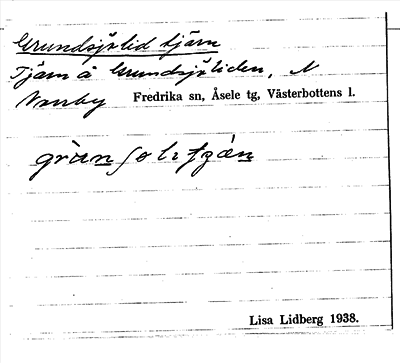 Grundsjölid tjärn
Tjärn å Grundsjöliden, N
Fredrika sn, Åsele tg, Västerbottens l.
Lisa Lidberg 1938.